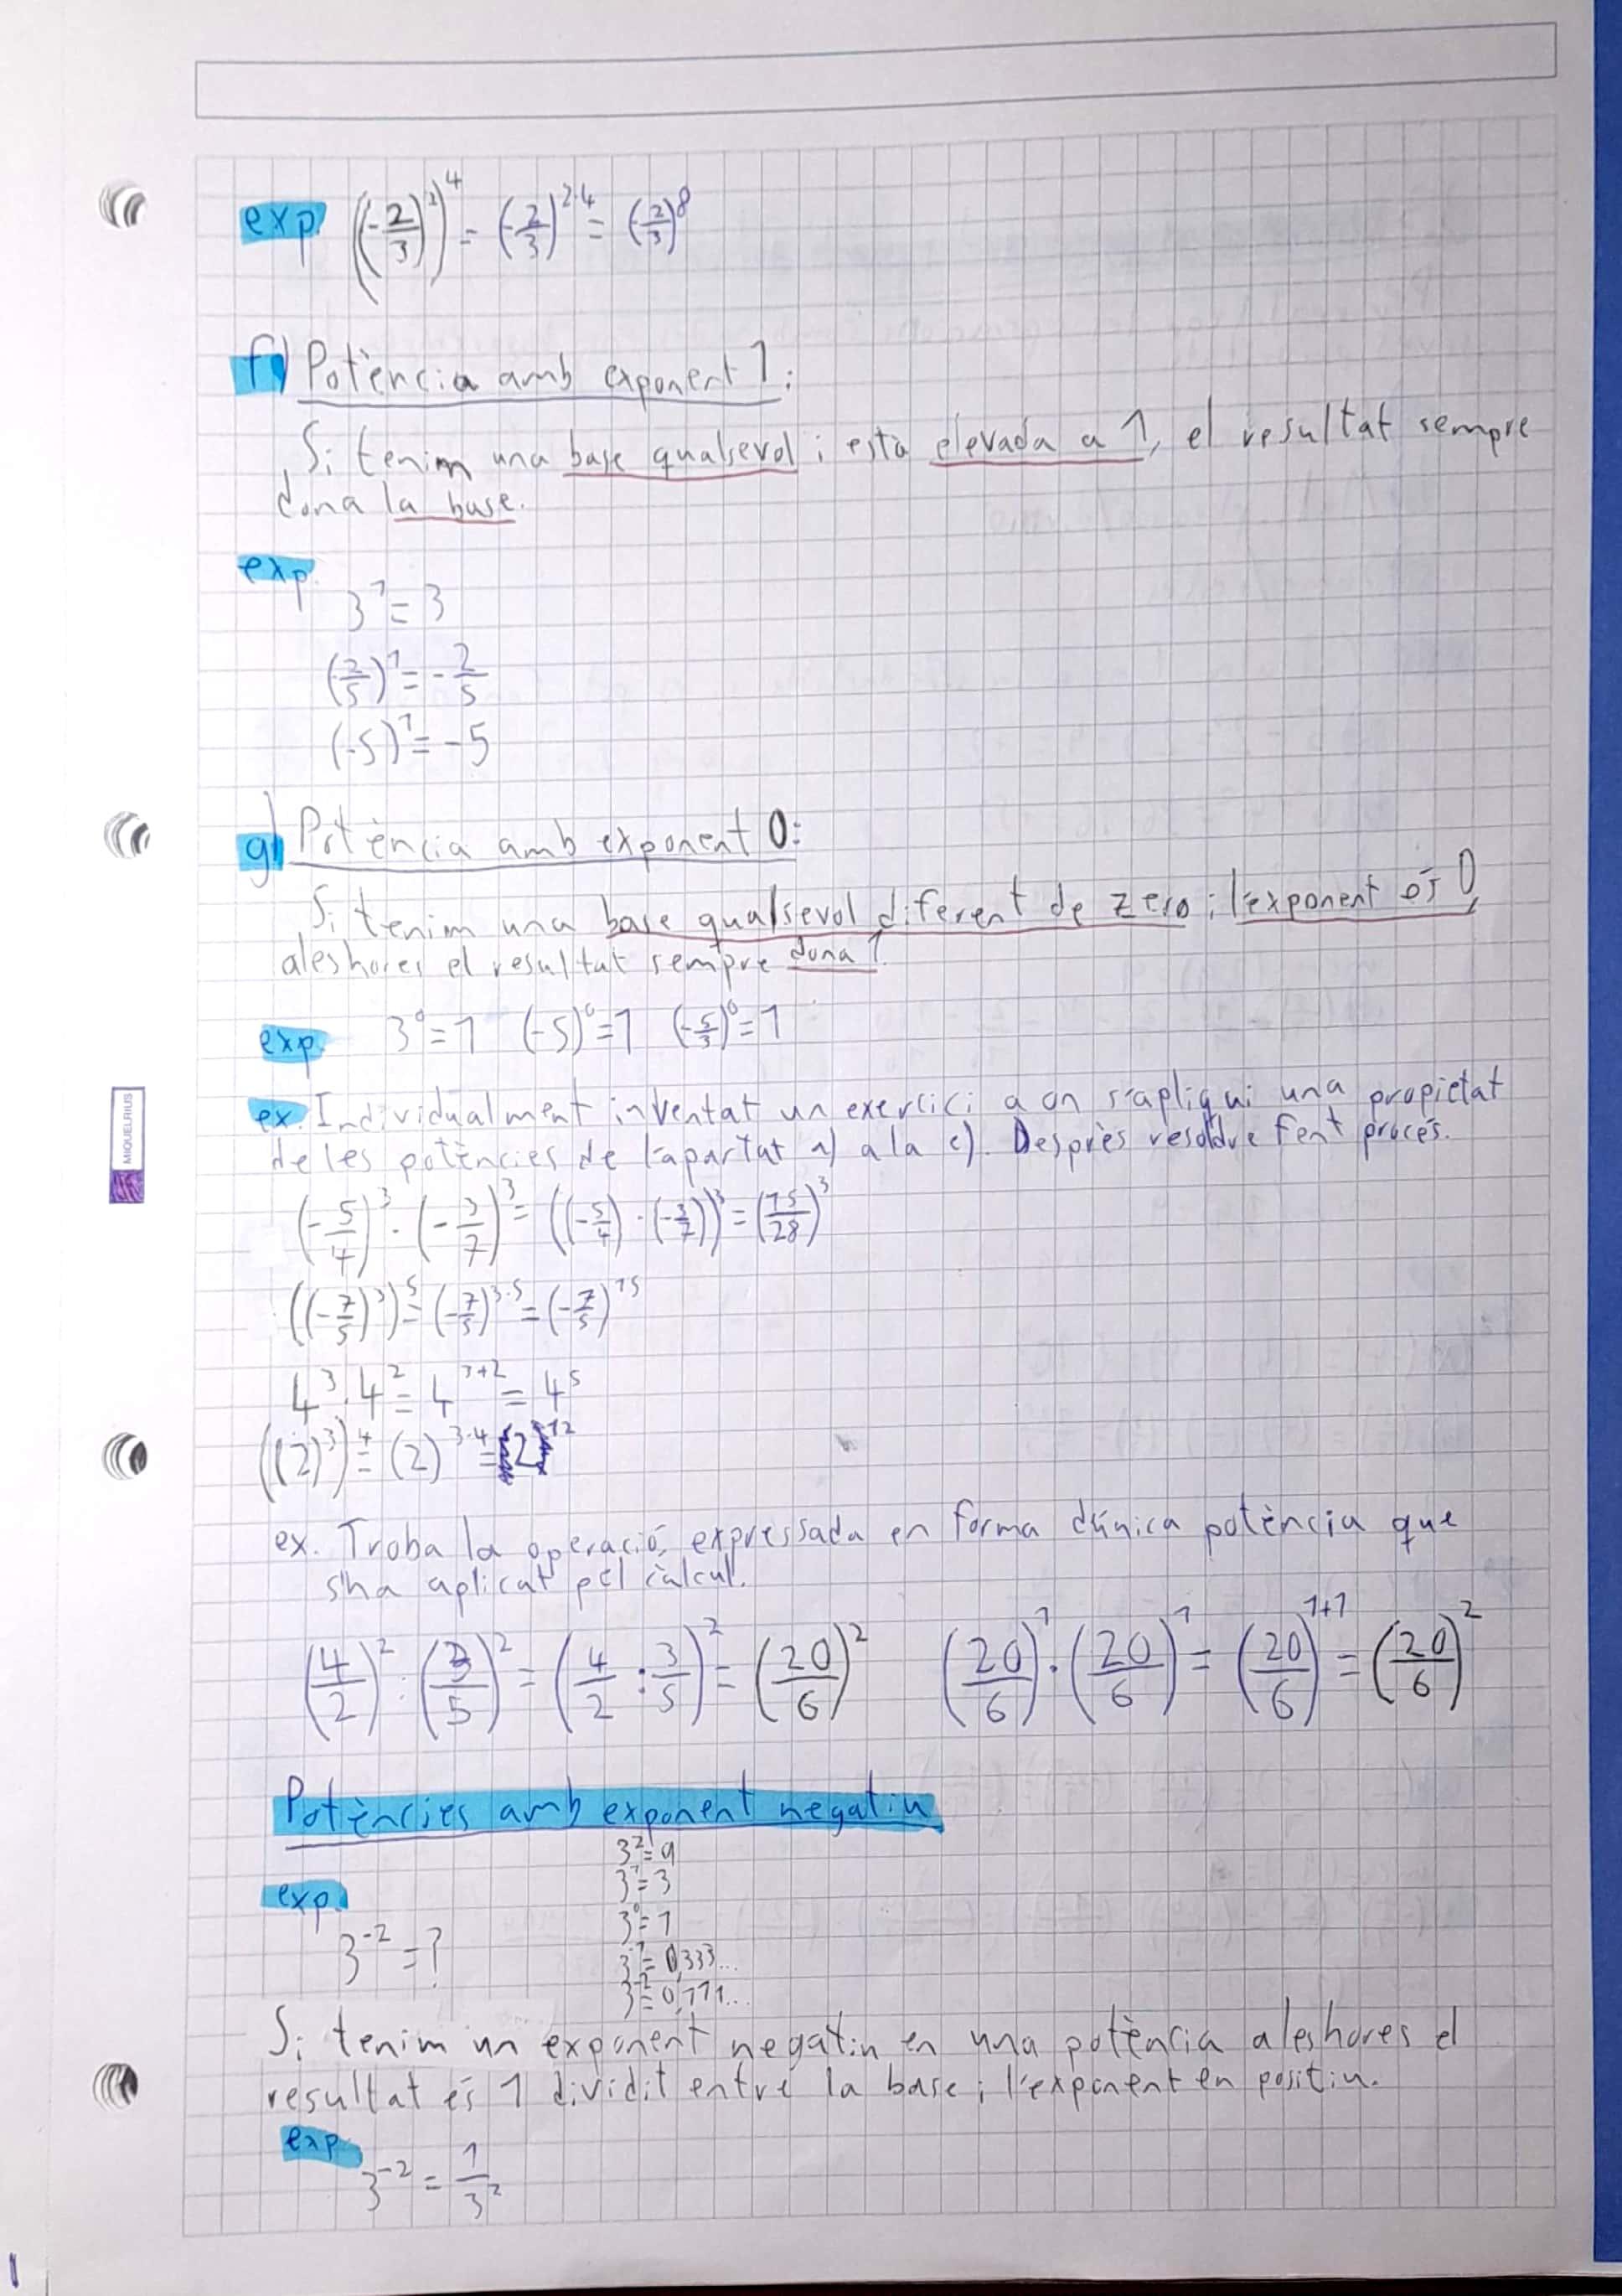 exp. ((-2/3)²)⁴ = (-2/3)^2·4 = (-2/3)⁸
f) Potència amb exponent 1:
Si tenim una base qualsevol i està elevada a 1, el resultat sempre
dona la base.
exp.
3¹ = 3
(-2/5)¹ = -2/5
(-5)¹ = -5
g) Potència amb exponent 0:
Si tenim una base qualsevol diferent de zero i l'exponent és 0,
aleshores el resultat sempre dona 1.
exp. 3⁰ = 1 (-5)⁰ = 1 (-5/3)⁰ = 1
ex. Individualment inventat un exercici a on s'apliqui una propietat
de les potències de l'apartat a) a la e). Desprès resoldre fent procés.
(-5/4)³ · (-3/7)³ = ((-5/4) · (-3/7))³ = (15/28)³
((-7/5)³)⁵ = (-7/5)^3·5 = (-7/5)¹⁵
4³ · 4² = 4^3+2 = 4⁵
((2)³)⁴ = (2)^3·4 = 2¹²
ex. Troba la operació, expressada en forma d'única potència que
s'ha aplicat pel càlcul.
(4/2)² : (3/5)² = (4/2 : 3/5)² = (20/6)² (20/6)¹ · (20/6)¹ = (20/6)^1+1 = (20/6)²
Potències amb exponent negatiu
3² = 9
3¹ = 3
exp.
3⁰ = 1
3⁻² = ?
3⁻¹ = 0,333...
3⁻² = 0,111...
Si tenim un exponent negatiu en una potència aleshores el
resultat és 1 dividit entre la base i l'exponent en positiu.
exp.
3⁻² = 1/3²
MIQUELRIUS